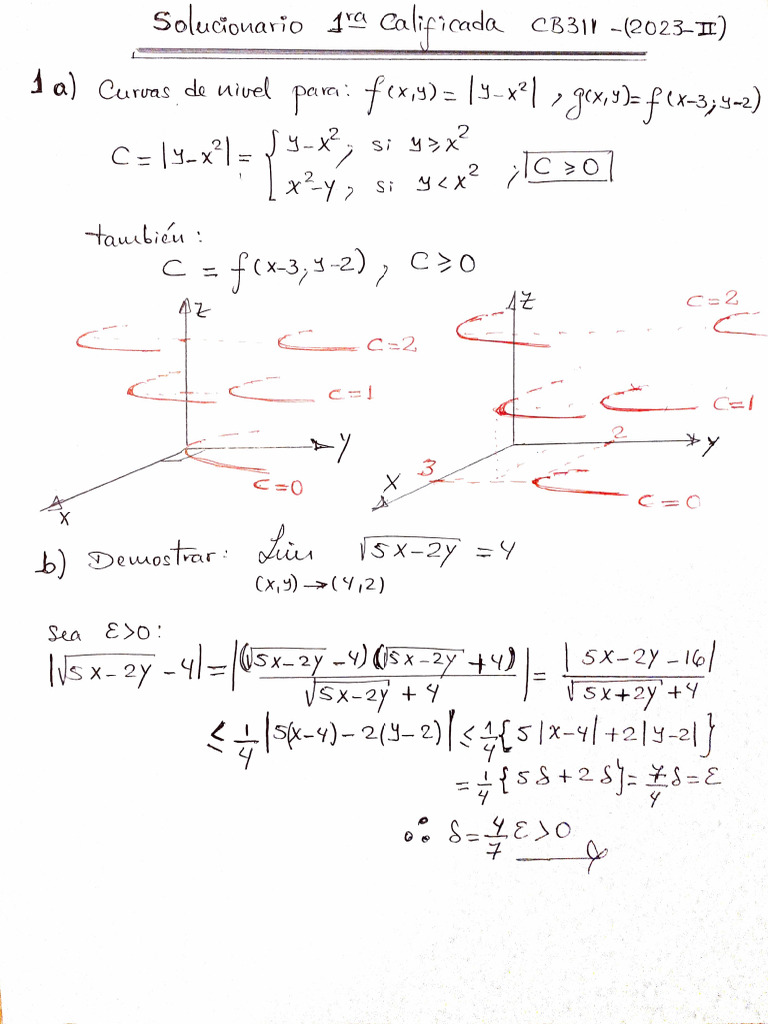 Solucionario 1ra Calificada CB311 -(2023-II)
1 a) Curvas de nivel para: f(x,y) = |y-x²| , g(x,y)=f(x-3; y-2)
C = |y-x²| = { y-x², si y≥x²
x²-y, si y<x² ; C ≥ 0
también:
C = f(x-3, y-2), C≥0
Z Z C=2
C=2
C=1 C=1
Y 2 Y
X 3
C=0 C=0
X
b) Demostrar: Lim √(5x-2y) = 4
(x,y)→(4,2)
Sea ε>0:
|√(5x-2y) - 4| = |(√(5x-2y) - 4)(√(5x-2y) + 4) / (√(5x-2y) + 4)| = |5x-2y-16| / (√(5x+2y) + 4)
≤ 1/4 |5(x-4) - 2(y-2)| ≤ 1/4 {5|x-4| + 2|y-2|}
= 1/4 {5δ + 2δ} = 7/4 δ = ε
∴ δ = 4/7 ε > 0